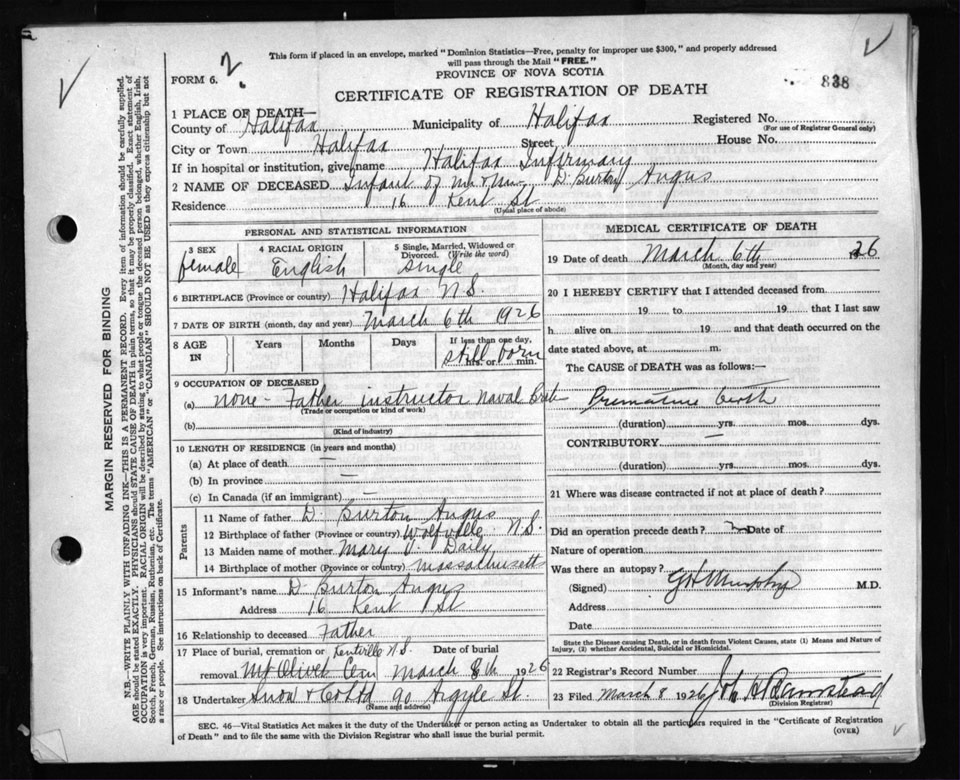 This form if placed in an envelope, marked "Dominion Statistics—Free, penalty for improper use $300," and properly addressed
will pass through the Mail "FREE."
PROVINCE OF NOVA SCOTIA
FORM 6. 2.
838
CERTIFICATE OF REGISTRATION OF DEATH
1 PLACE OF DEATH—
County of Halifax Municipality of Halifax Registered No.
(For use of Registrar General only)
City or Town Halifax Street House No.
If in hospital or institution, give name Halifax Infirmary
2 NAME OF DECEASED Infant of Mr & Mrs. D. Burton Angus
Residence 16 Kent St
(Usual place of abode)
PERSONAL AND STATISTICAL INFORMATION
3 SEX female
4 RACIAL ORIGIN English
5 Single, Married, Widowed or Divorced. (Write the word) single
6 BIRTHPLACE (Province or country) Halifax N.S.
7 DATE OF BIRTH (month, day and year) March 6th 1926
8 AGE IN Years Months Days If less than one day, hrs. or min. still born
9 OCCUPATION OF DECEASED
(a) none - Father instructor Naval
(Trade or occupation or kind of work)
(b)
(Kind of industry)
10 LENGTH OF RESIDENCE (in years and months)
(a) At place of death —
(b) In province —
(c) In Canada (if an immigrant) —
Parents
11 Name of father D. Burton Angus
12 Birthplace of father (Province or country) Wolfville N.S.
13 Maiden name of mother Mary V. Daily
14 Birthplace of mother (Province or country) Massachusetts
15 Informant's name D Burton Angus
Address 16 Kent St
16 Relationship to deceased Father
17 Place of burial, cremation or Kentville N.S. Date of burial
removal Mt Olivet Cem March 8th 1926
18 Undertaker Snow & Co Ltd 90 Argyle St.
(Name and address)
MEDICAL CERTIFICATE OF DEATH
19 Date of death March 6th 26
(Month, day and year)
20 I HEREBY CERTIFY that I attended deceased from
19 to 19 that I last saw
h alive on 19 and that death occurred on the
date stated above, at m.
The CAUSE of DEATH was as follows:—
Premature birth
(duration) yrs. mos. dys.
CONTRIBUTORY —
(duration) yrs. mos. dys.
21 Where was disease contracted if not at place of death?
Did an operation precede death? Date of
Nature of operation
Was there an autopsy?
(Signed) G H Murphy M.D.
Address
Date
State the Disease causing Death, or in death from Violent Causes, state (1) Means and Nature of
Injury, (2) whether Accidental, Suicidal or Homicidal.
22 Registrar's Record Number
23 Filed March 8 1926
(Division Registrar)
SEC. 46—Vital Statistics Act makes it the duty of the Undertaker or person acting as Undertaker to obtain all the particulars required in the "Certificate of Registration
of Death" and to file the same with the Division Registrar who shall issue the burial permit.
(OVER)
MARGIN RESERVED FOR BINDING
N.B.—WRITE PLAINLY WITH UNFADING INK—THIS IS A PERMANENT RECORD. Every item of information should be carefully supplied.
AGE should be stated EXACTLY. PHYSICIANS should STATE CAUSE OF DEATH in plain terms, so that it may be properly classified. Exact statement of
OCCUPATION is very important. RACIAL ORIGIN will be described by stating to what people or tongue the deceased person belonged, whether English, Irish,
Scotch, French, German, Russian, Ruthenian, etc. The terms "AMERICAN" or "CANADIAN" SHOULD NOT BE USED as they express citizenship but not
a race or people. See instructions on back of Certificate.